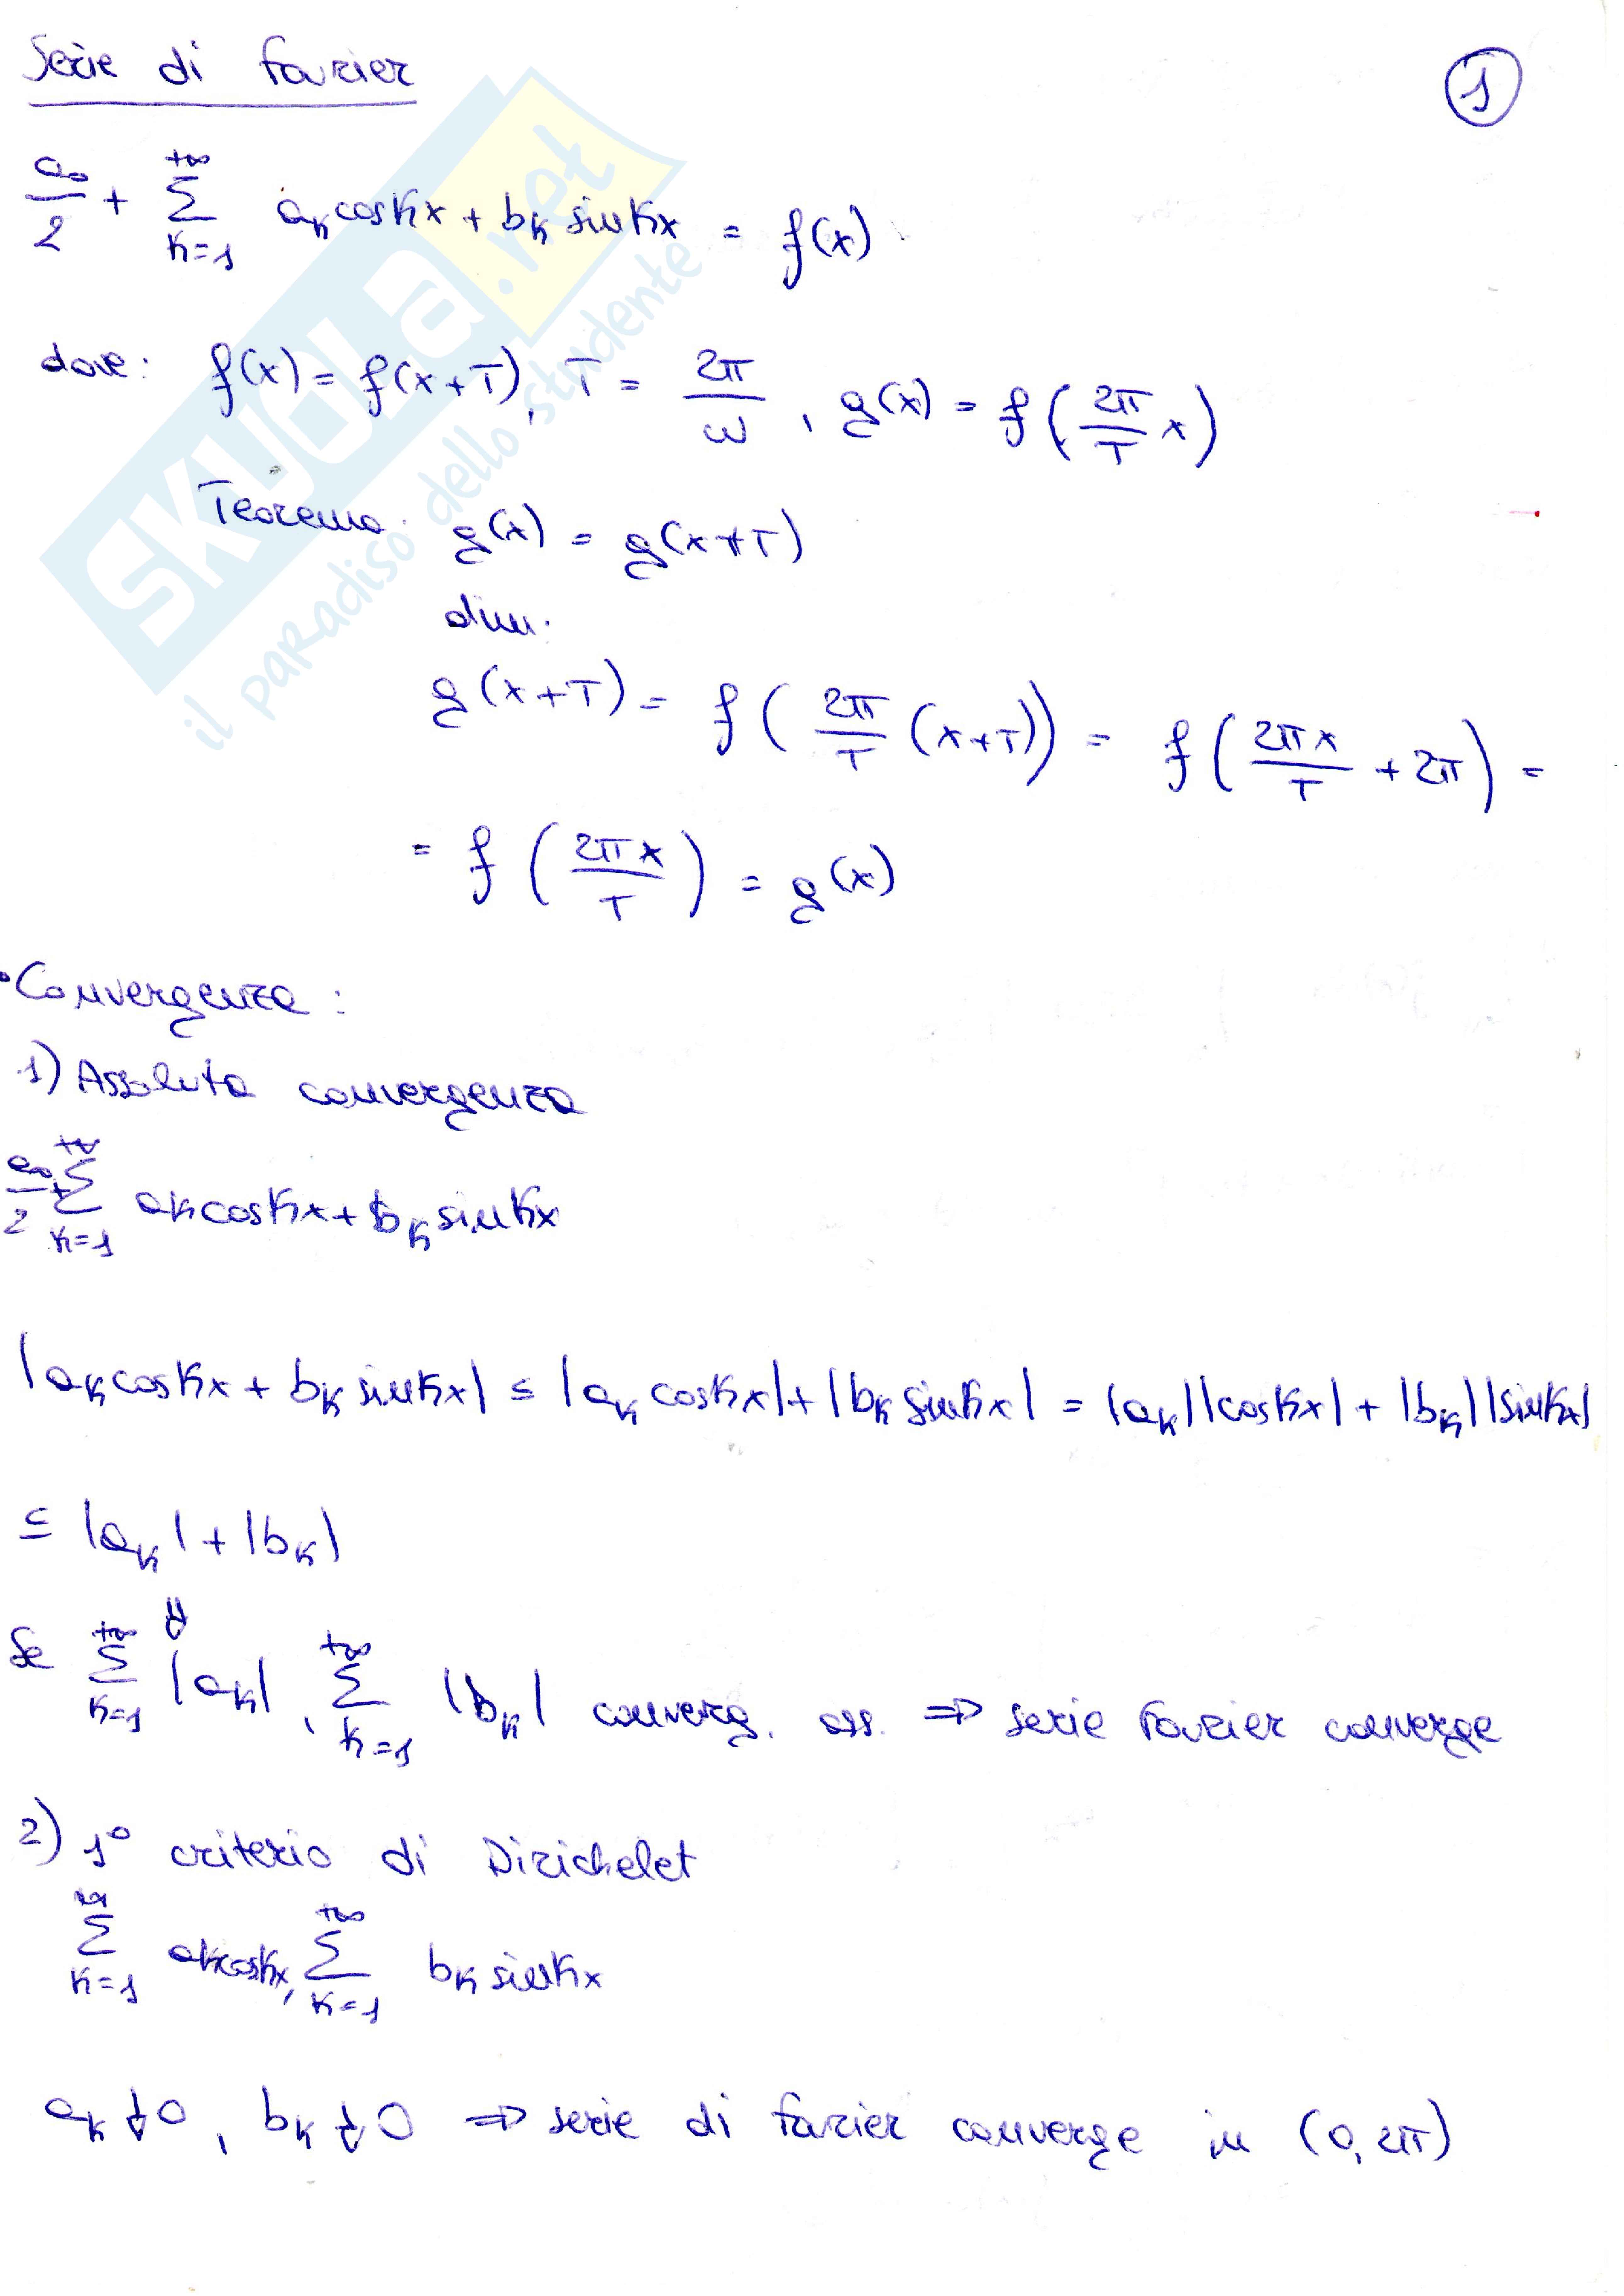 Serie di Fourier
1
a₀/2 + Σ_{k=1}^{+∞} aₖ cos kx + bₖ sin kx = f(x)
dove: f(x) = f(x+T), T = 2π/ω, g(x) = f(2π/T x)
Teorema. g(x) = g(x+T)
dim.
g(x+T) = f(2π/T (x+T)) = f(2πx/T + 2π) =
= f(2πx/T) = g(x)
•Convergenza:
1) Assoluta convergenza
a₀/2 + Σ_{k=1}^{+∞} aₖ cos kx + bₖ sin kx
|aₖ cos kx + bₖ sin kx| ≤ |aₖ cos kx| + |bₖ sin kx| = |aₖ||cos kx| + |bₖ||sin kx|
≤ |aₖ| + |bₖ|
⇓
Se Σ_{k=1}^{+∞} |aₖ|, Σ_{k=1}^{+∞} |bₖ| converg. ass. ⇒ serie Fourier converge
2) 1° criterio di Dirichelet
Σ_{k=1}^{+∞} aₖ cos kx, Σ_{k=1}^{+∞} bₖ sin kx
aₖ ↓ 0, bₖ ↓ 0 ⇒ serie di Fourier converge in (0, 2π)
SKUOLA.net
il paradiso dello studente